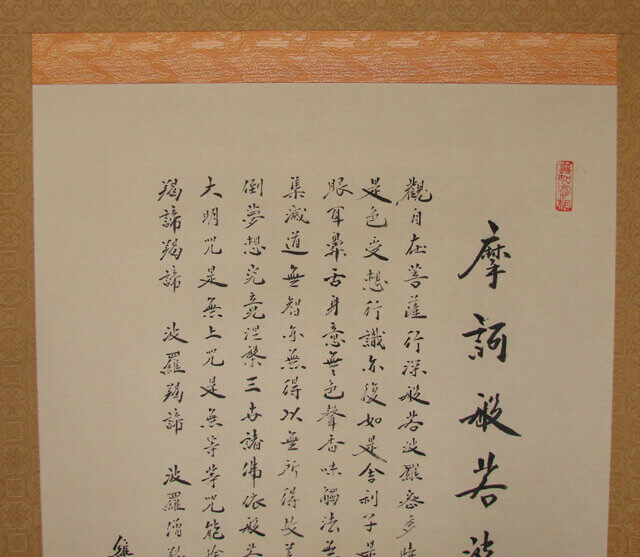 摩訶般若波
觀自在菩薩行深般若波羅蜜多時
是色受想行識亦復如是舍利子是
眼耳鼻舌身意無色聲香味觸法無
集滅道無智亦無得以無所得故菩
倒夢想究竟涅槃三世諸佛依般若
大明咒是無上咒是無等等咒能除
羯諦羯諦 波羅羯諦 波羅僧羯